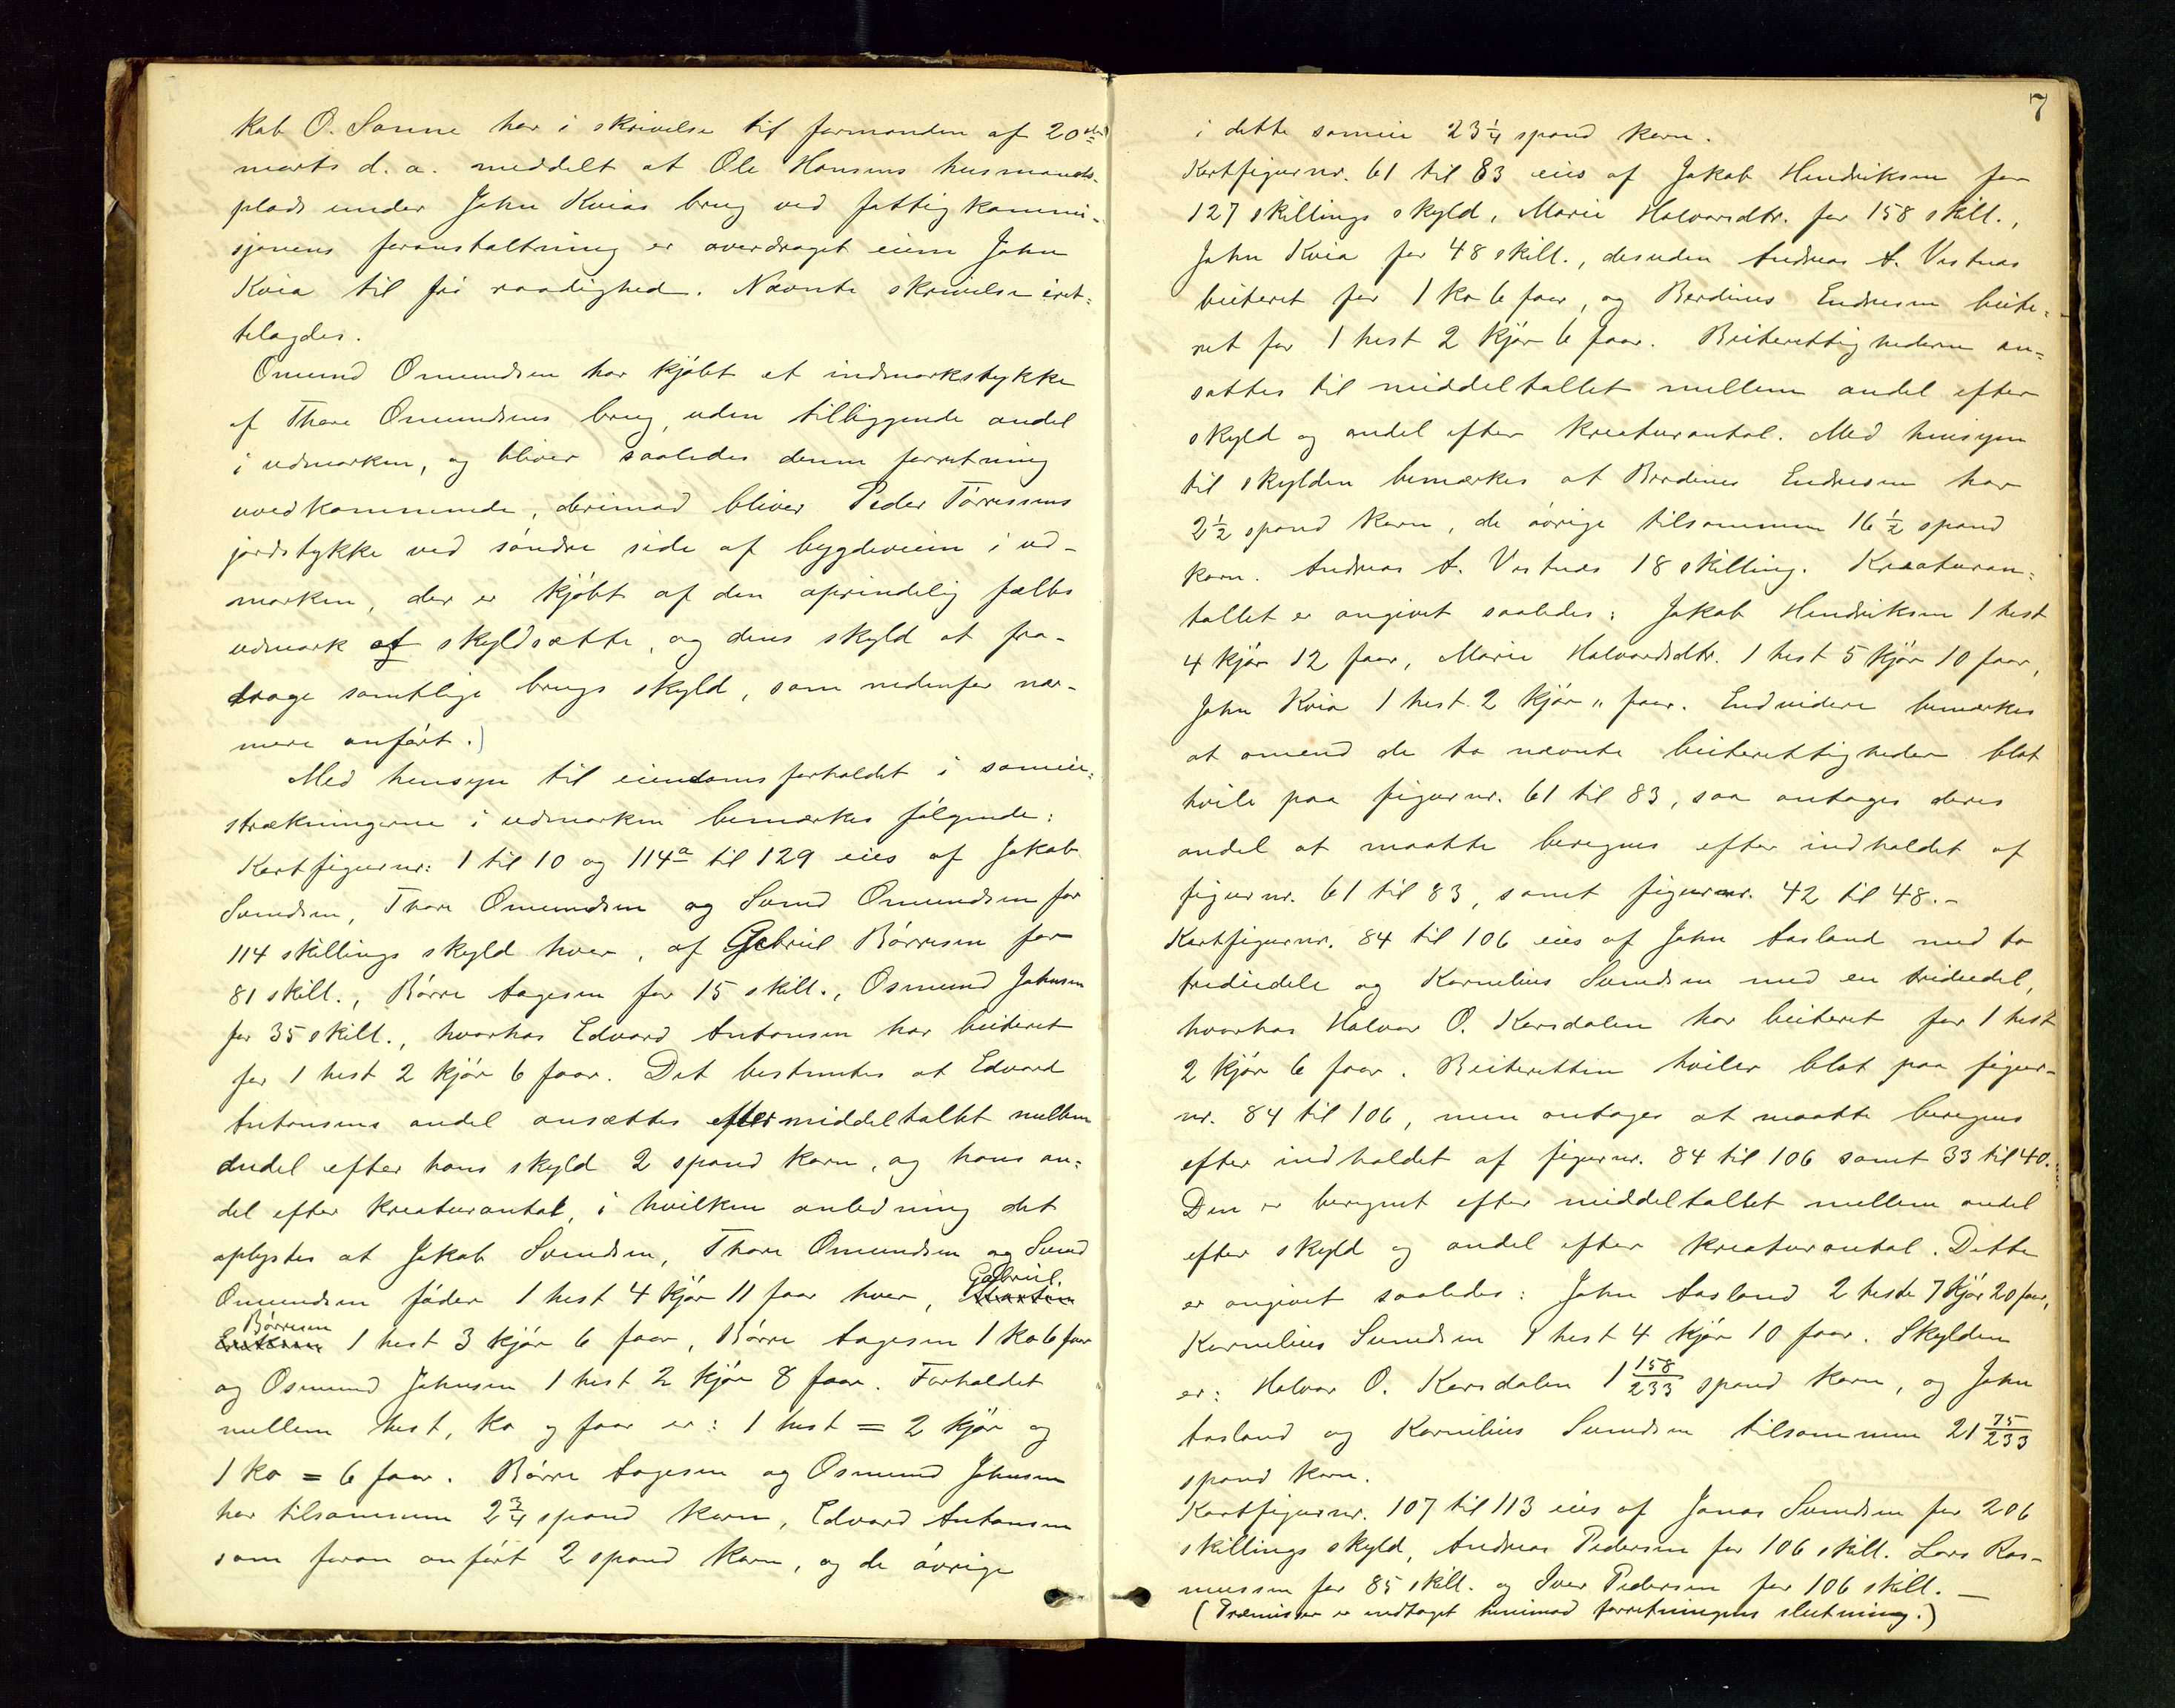 kab O. Sanne har i skrivelse til formanden af 20de
marts d. a. meddelt at Ole Hansens husmands-
plads under John Kvias brug ved fattigkommi-
sjonens foranstaltning er overdraget eieren John
Kvia til fri raadighed. Nævnte skrivelse iret-
telagdes.
Omund Omundsen har kjøbt et indmarkstykke
af Thore Omundsens brug, uden tilliggende andel
i udmarken, og bliver saaledes denne forretning
uvedkommende, derimod bliver Peder Tørressens
jordstykke ved søndre side af bygdeveien i ud-
marken, der er kjøbt af den oprindelig fælles
udmark at skyldsætte, og dens skyld at fra-
drage samtlige brugs skyld, som nedenfor nær-
mere anført.)
Med hensyn til eiendomsforholdet i sameie-
strækningerne i udmarken bemærkes følgende:
Kartfigurnr: 1 til 10 og 114a til 129 eies af Jakob
Svendsen, Thore Omundsen og Svend Omundsen for
114 skillings skyld hver, af Gabriel Børresen for
81 skill., Børre Aagesen for 15 skill., Osmund Johnsen
for 35 skill., hvorhos Edvard Antonsen har beiteret
for 1 hest 2 kjør 6 faar. Det bestemtes at Edvard
Antonsens andel ansættes efter middeltallet mellem
andel efter hans skyld 2 spand korn, og hans an-
del efter kreaturantal, i hvilken anledning det
oplystes at Jakob Svendsen, Thore Omundsen og Svend
Omundsen føder 1 hest 4 kjør 11 faar hver, Gabriel
Børresen 1 hest 3 kjør 6 faar, Børre Aagesen 1 ko 6 faar
og Osmund Johnsen 1 hest 2 kjør 8 faar. Forholdet
mellem hest, ko og faar er: 1 hest = 2 kjør og
1 ko = 6 faar. Børre Aagesen og Osmund Johnsen
har tilsammen 2 3/4 spand korn, Edvard Antonsen
som foran anført 2 spand korn, og de øvrige
7
i dette sameie 23 1/4 spand korn.
Kartfigurnr. 61 til 83 eies af Jakob Hendriksen for
127 skillings skyld, Marie Halvorsdtr. for 158 skill.,
John Kvia for 48 skill., desuden Andreas A. Vestnes
beiteret for 1 ko 6 faar, og Berdines Endresen beite-
ret for 1 hest 2 kjør 6 faar. Beiterettighederne an-
sattes til middeltallet mellem andel efter
skyld og andel efter kreaturantal. Med hensyn
til skylden bemærkes at Berdines Endresen har
2 1/2 spand korn, de øvrige tilsammen 16 1/2 spand
korn. Andreas A. Vestnes 18 skilling. Kreaturan-
tallet er angivet saaledes: Jakob Hendriksen 1 hest
4 kjør 12 faar, Marie Halvorsdtr. 1 hest 5 kjør 10 faar,
John Kvia 1 hest 2 kjør " faar. Endvidere bemærkes
at omend de to nævnte beiterettigheder blot
hvile paa figurnr. 61 til 83, saa antages deres
andel at maatte beregnes efter indholdet af
figurnr. 61 til 83, samt figurnr. 42 til 48.-
Kartfigurnr. 84 til 106 eies af John Aasland med to
trediedele og Kornelius Svendsen med en trediedel,
hvorhos Halvor O. Korsdalen har beiteret for 1 hest
2 kjør 6 faar. Beiteretten hviler blot paa figur-
nr. 84 til 106, men antages at maatte beregnes
efter indholdet af figurnr. 84 til 106 samt 33 til 40.
Den er beregnet efter middeltallet mellem andel
efter skyld og andel efter kreaturantal. Dette
er angivet saaledes: John Aasland 2 heste 7 kjør 20 faar,
Kornelius Svendsen 1 hest 4 kjør 10 faar. Skylden
er: Halvor O. Korsdalen 1 158/233 spand korn, og John
Aasland og Kornelius Svendsen tilsammen 21 75/233
spand korn.
Kartfigurnr. 107 til 113 eies af Jonas Svendsen for 206
skillings skyld, Andreas Pedersen for 106 skill. Lars Ras-
mussen for 85 skill. og Iver Pedersen for 106 skill. —
(Præmisser er indtaget henimod forretningens slutning.)